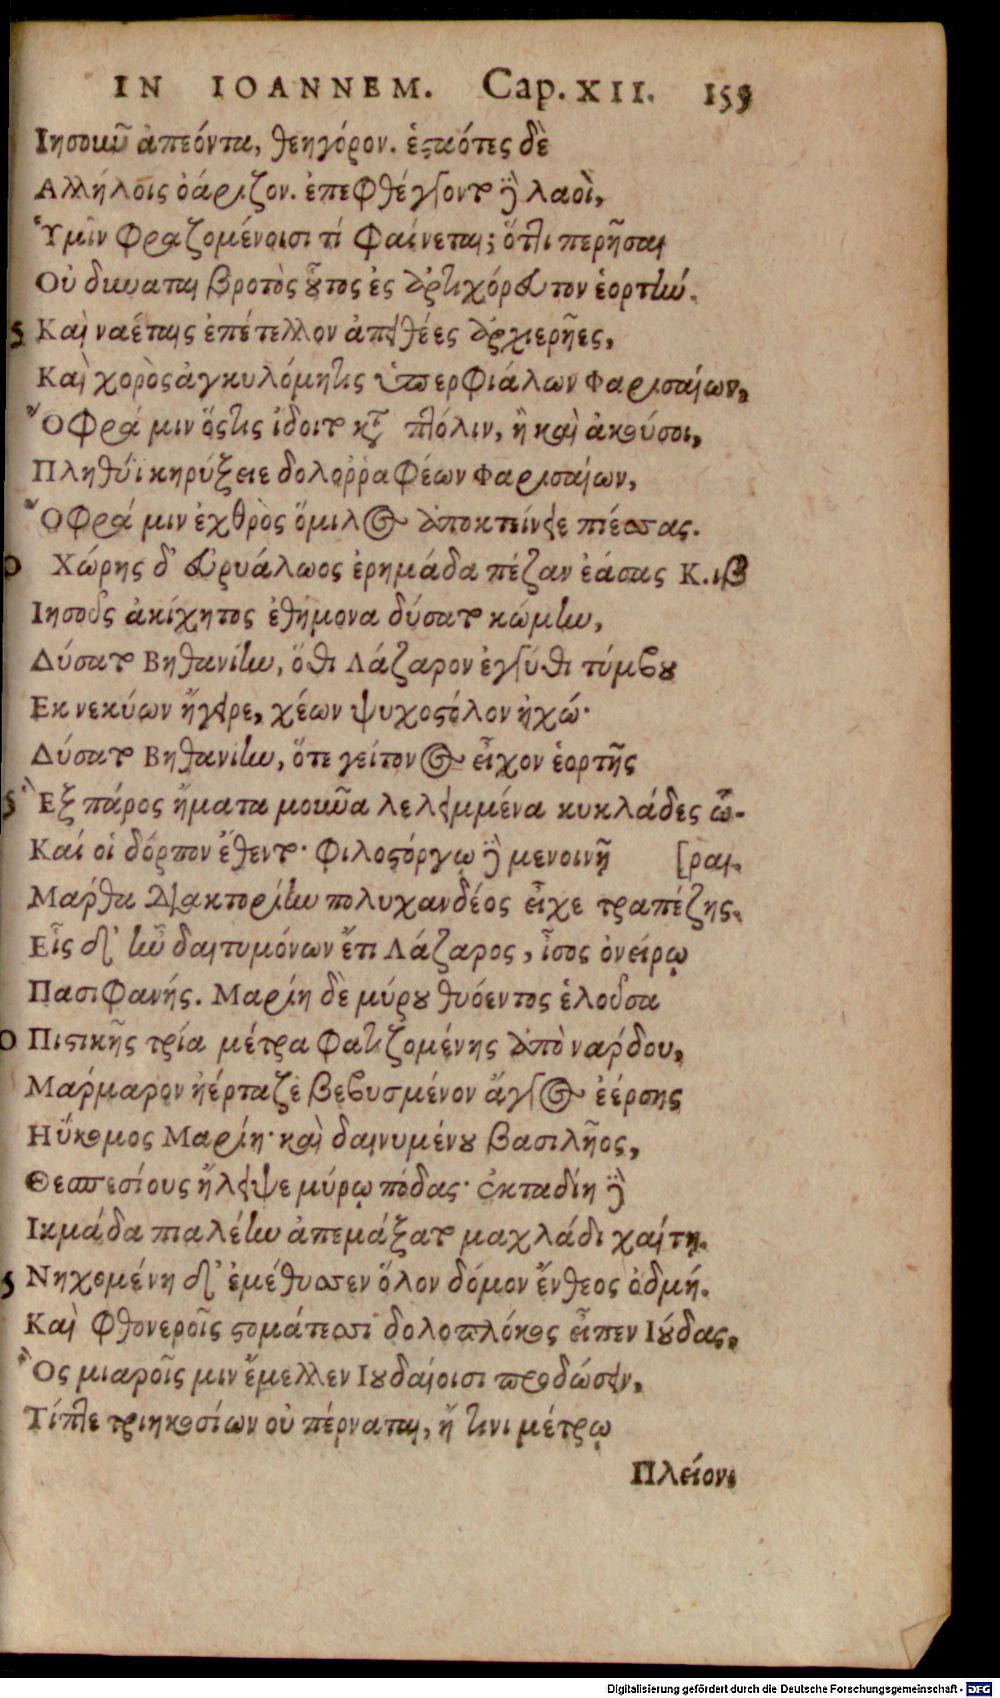 IN IOANNEM. Cap. XII. 159
Ιησοιωῦ ἀπεόντα, θεηγόρον. ἑςκότες δὲ
Αλλήλοις ὀάριζον. ἐπεφθέγγοντο ἢ λαοὶ,
Ὑμῖν φραζομένοισι τί φαίνεται; ὅτ῾τι περῆσαι
Οὐ δύναται βροτὸς οὗτος ἐς ἀρτιχόρευτον ἑορτήν.
5 Καὶ ναέταις ἐπέτελλον ἀπειθέες ἀρχιερῆες,
Καὶ χορὸς ἀγκυλόμητις ὑπερφιάλων Φαρισαίων,
Ὄφρά μιν ὅςτις ἴδοιτο κατὰ πτόλιν, ἢ καὶ ἀκούσοι,
Πληθύϊ κηρύξειε δολοῤῥαφέων Φαρισαίων,
Ὄφρά μιν ἐχθρὸς ὅμιλος ἀποκτείνειε πιέσσας.
0 Χώρης δ' εὐρυάλωος ἐρημάδα πέζαν ἐάσας Κ.ιβ
Ιησοῦς ἀκίχητος ἐθήμονα δύσατο κώμην,
Δύσατο Βηθανίην, ὅθι Λάζαρον ἐγγύθι τύμβου
Εκ νεκύων ἤγειρε, χέων ψυχοςόλον ἠχώ·
Δύσατο Βηθανίην, ὅτε γείτονος εἶχον ἑορτῆς
5 Ἓξ πάρος ἤματα μοῦνα λελειμμένα κυκλάδες ὧ-
Καί οἱ δόρπον ἔθεντο· φιλοςόργῳ ἢ μενοινῇ [ραι.
Μάρθα διακτορίην πολυχανδέος εἶχε τραπέζης.
Εἷς δ' ἦν δαιτυμόνων ἔτι Λάζαρος, ἶσος ὀνείρῳ
Πασιφανής. Μαρίη δὲ μύρου θυόεντος ἑλοῦσα
0 Πιςικῆς τρία μέτρα φατιζομένης ἀπὸ νάρδου,
Μάρμαρον ἠέρταζε βεβυσμένον ἄγγος ἐέρσης
Ηΰκομος Μαρίη· καὶ δαινυμένου βασιλῆος,
Θεσπεσίους ἤλειψε μύρῳ πόδας· ἐκταδίη ἢ
Ικμάδα πιαλέην ἀπεμάξατο μαχλάδι χαίτῃ.
5 Νηχομένη δ' ἐμέθυσσεν ὅλον δόμον ἔνθεος ὀδμή.
Καὶ φθονεροῖς ςομάτεσσι δολοπλόκος εἶπεν Ιούδας,
Ὃς μιαροῖς μιν ἔμελλεν Ιουδαίοισι προδώσειν,
Τίπτε τριηκοσίων οὐ πέρναται, ἤ τινι μέτρῳ
Πλείονι
Digitalisierung gefördert durch die Deutsche Forschungsgemeinschaft - DFG